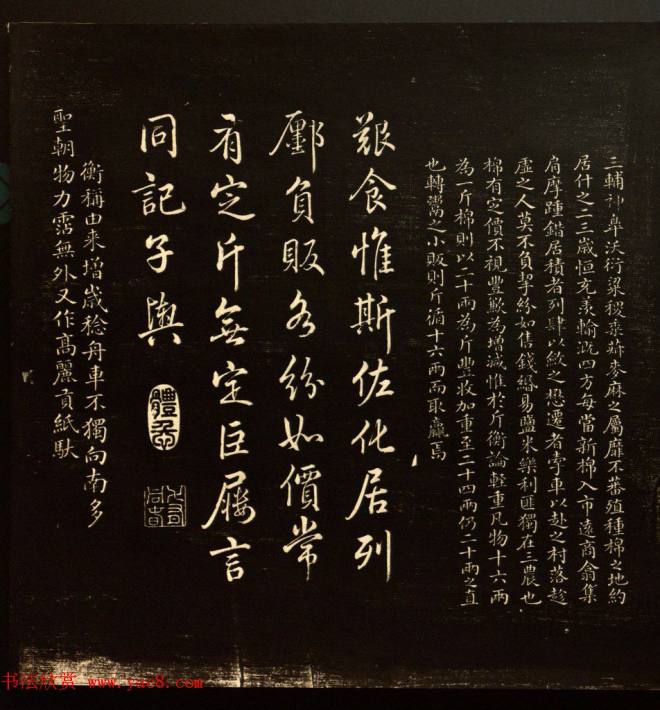 三輔神皐沃衍粱稷黍菽麥麻之屬靡不蕃殖種棉之地約
居什之二三歲恒充羡輸溉四方每當新棉入市遠商翕集
肩摩踵錯居積者列肆以斂之懋遷者牽車以赴之村落趁
虛之人莫不負挈紛如售錢緡易鹽米樂利匪獨在三農也
棉有定價不視豐歉為增減惟於斤衡論輕重凡物十六兩
為一斤棉則以二十兩為斤豐收加重至二十四兩仍二十兩之直
也轉鬻之小販則斤循十六兩而取贏焉
艱食惟斯佐化居列
鄽負販各紛如價常
有定斤無定巨屨言
同記子輿
衡稱由来增歲稔舟車不獨向南多
聖朝物力霑無外又作高麗貢紙馱
书法欣赏 www.yac8.com